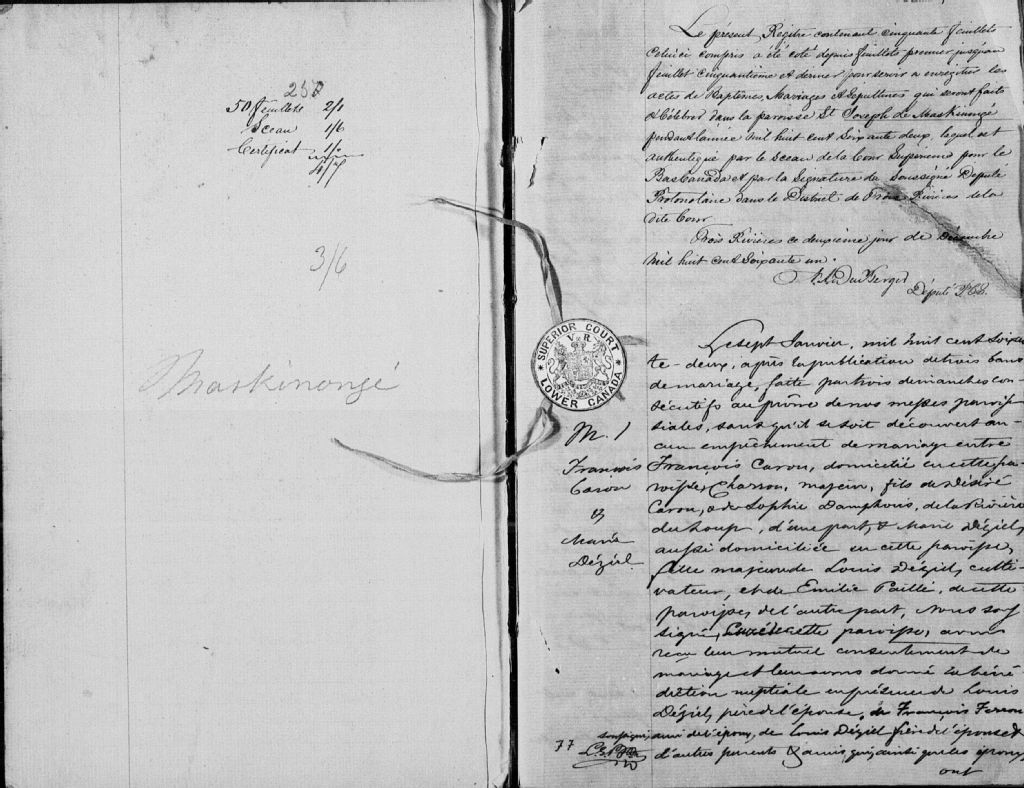 257
50 feuillets 2/1
Sceau 1/6
Certificat 1/-
4/7
3/6
Maskinongé
Le présent Régitre contenant cinquante feuillets
celuici compris a été coté depuis feuillets premier jusqu'au
feuillet cinquantième et dernier pour servir a enregitrer les
actes de Baptêmes, Mariages et Sepultures qui seront faits
& Célébrés dans la paroisse St Joseph de Maskinongé
pendant l'année mil huit cent Soixante deux, lequel est
authentiqué par le Sceau de la Cour Supérieure pour le
Bas Canada et par la Signature du Soussigné Député
Protonotaire dans le District de Trois Rivières de la
dite Cour
Trois Rivières ce deuxième jour de Décembre
mil huit cent Soixante un.
Député
SUPERIOR COURT
V R
LOWER CANADA
M. 1
François
Caron
&
Marie
Déziel
Le sept Janvier, mil huit cent soixan
te-deux, après la publication de trois bans
de mariage, faite par trois dimanches con-
sécutifs au prône de nos messes parois-
siales, sans qu'il se soit découvert au-
cun empêchement de mariage entre
François Caron, domicilié en cette pa-
roisse, Charron, majeur, fils de Désiré
Caron, & de Sophie Damphouis, de la Rivière
du Loup, d'une part, & Marie Déziel,
aussi domiciliée en cette paroisse,
fille majeure de Louis Déziel, culti-
vateur, et de Emilie Paillé, de cette
paroisse, de l'autre part, Nous sous
signé, Curé de cette paroisse, avons
reçu leur mutuel consentement de
mariage et leur avons donné la béné
diction nuptiale en présence de Louis
Déziel, père de l'épouse, de François Ferron
ami de l'époux, de Louis Déziel frère de l'épouse &
77
d'autres parents & amis qui, ainsi que les époux,
ont